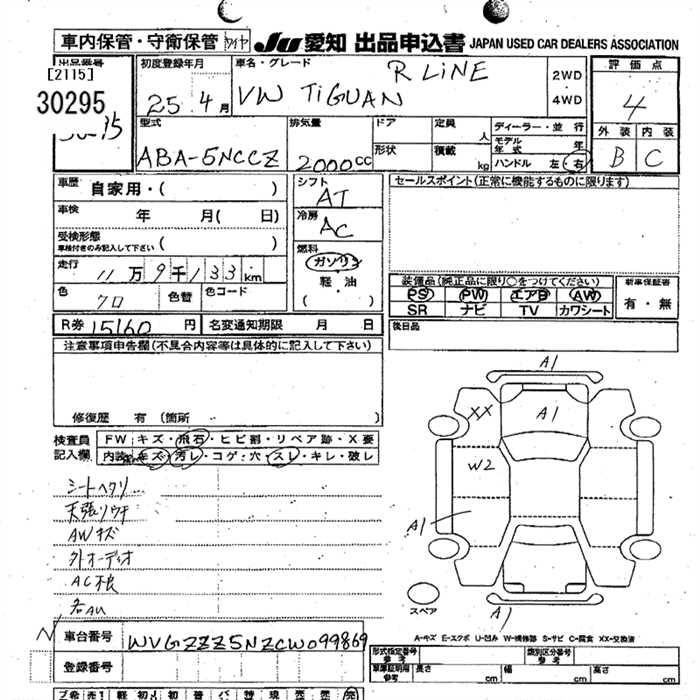 車内保管・守衛保管 ワイヤ JU 愛知 出品申込書 JAPAN USED CAR DEALERS ASSOCIATION
出品番号 初度登録年月 車名・グレード 評価点
[2115]
30295
25年 4月 VW TIGUAN R LiNE 2WD 4WD 4
外装 内装
B C
型式 排気量 ドア 定員 人 ディーラー・並行
モデル年式 年
ABA-5NCCZ 2000cc 形状 積載 kg ハンドル 左・右
車歴 自家用・( ) シフト AT セールスポイント(正常に機能するものに限ります)
車検 年 月( 日) 冷房 AC
受検形態
車検付きのみ記入して下さい ( ) 燃料
ガソリン
軽・油
( )
走行 11万9千133km
装備品(純正品に限り○をつけてください) 新車保証書
PS PW エアB AW 有・無
SR ナビ TV カワシート
色 クロ 色替 色コード
R券 15160円 名変通知期限 月 日 後日品
注意事項申告欄(不具合内容等は具体的に記入して下さい)
修復歴 有(箇所 )
検査員記入欄 FW キズ・飛石・ヒビ割・リペア跡・X要
内装 キズ・汚レ・コゲ・穴・スレ・キレ・破レ
シートヘタリ
天張リウキ
AWキズ
外オーディオ
AC不良
A1
XX
A1
W2
A1
スペア
A1
A-キズ E-エクボ U-凹み W-補修跡 S-サビ C-腐食 XX-交換済
車台番号 WVGZZZ5NZCW099869
登録番号
形式指定番号 参考 類別区分番号 参考
車庫証明用 参考 長さ cm 幅 cm 高さ cm